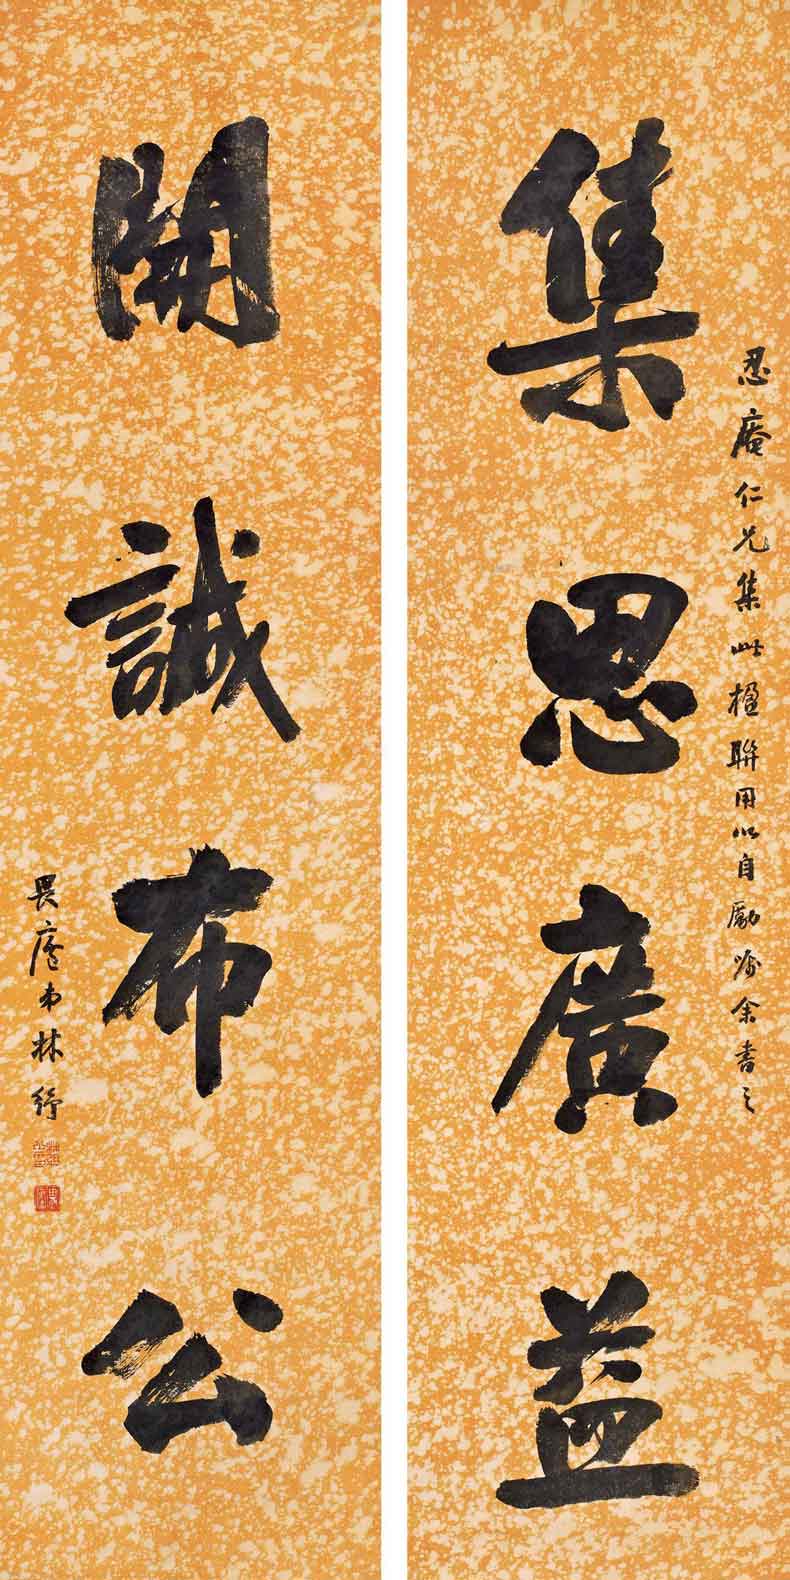 忍庵仁兄集此楹聯用以自勵囑余書之
集思廣益
開誠布公
畏廬弟林紓